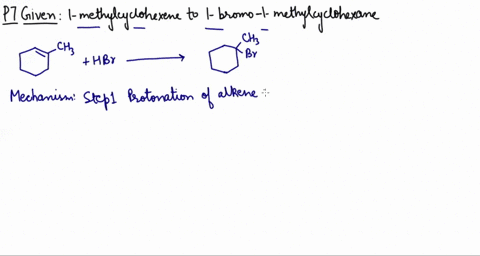 P7 Given: 1-methylcyclohexene to 1-bromo-1-methylcyclohexane
CH3
+ HBr
CH3
Br
Mechanism: Step1 Protonation of alkene :